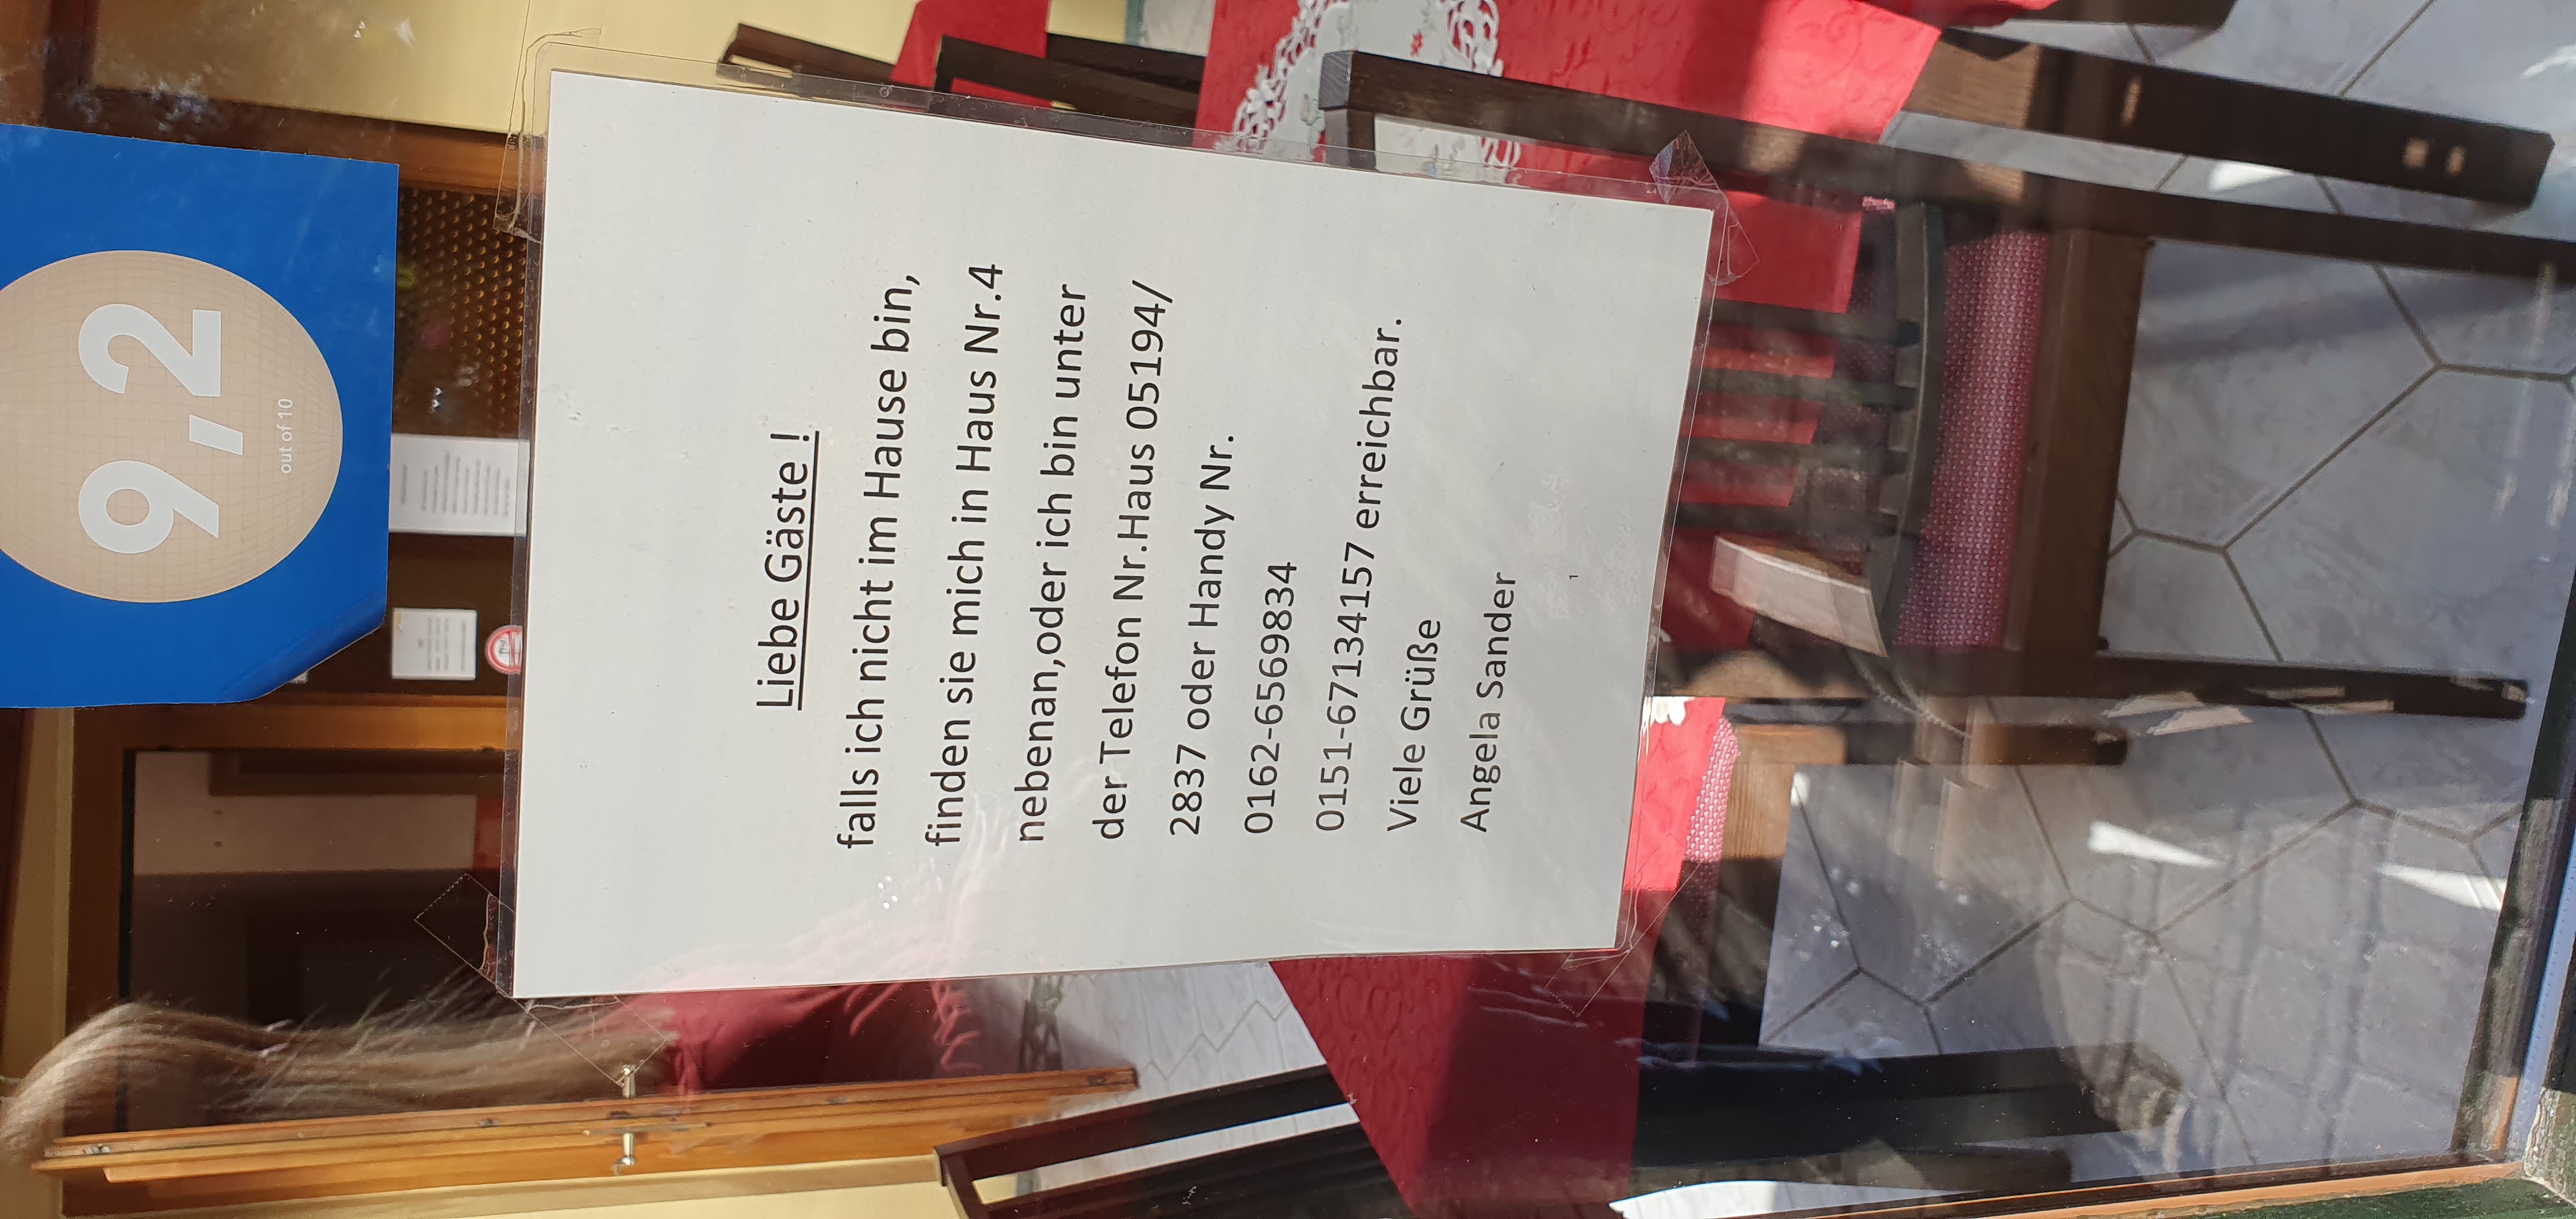 9,2
out of 10
Liebe Gäste !
falls ich nicht im Hause bin,
finden sie mich in Haus Nr.4
nebenan,oder ich bin unter
der Telefon Nr.Haus 05194/
2837 oder Handy Nr.
0162-6569834
0151-67134157 erreichbar.
Viele Grüße
Angela Sander
1